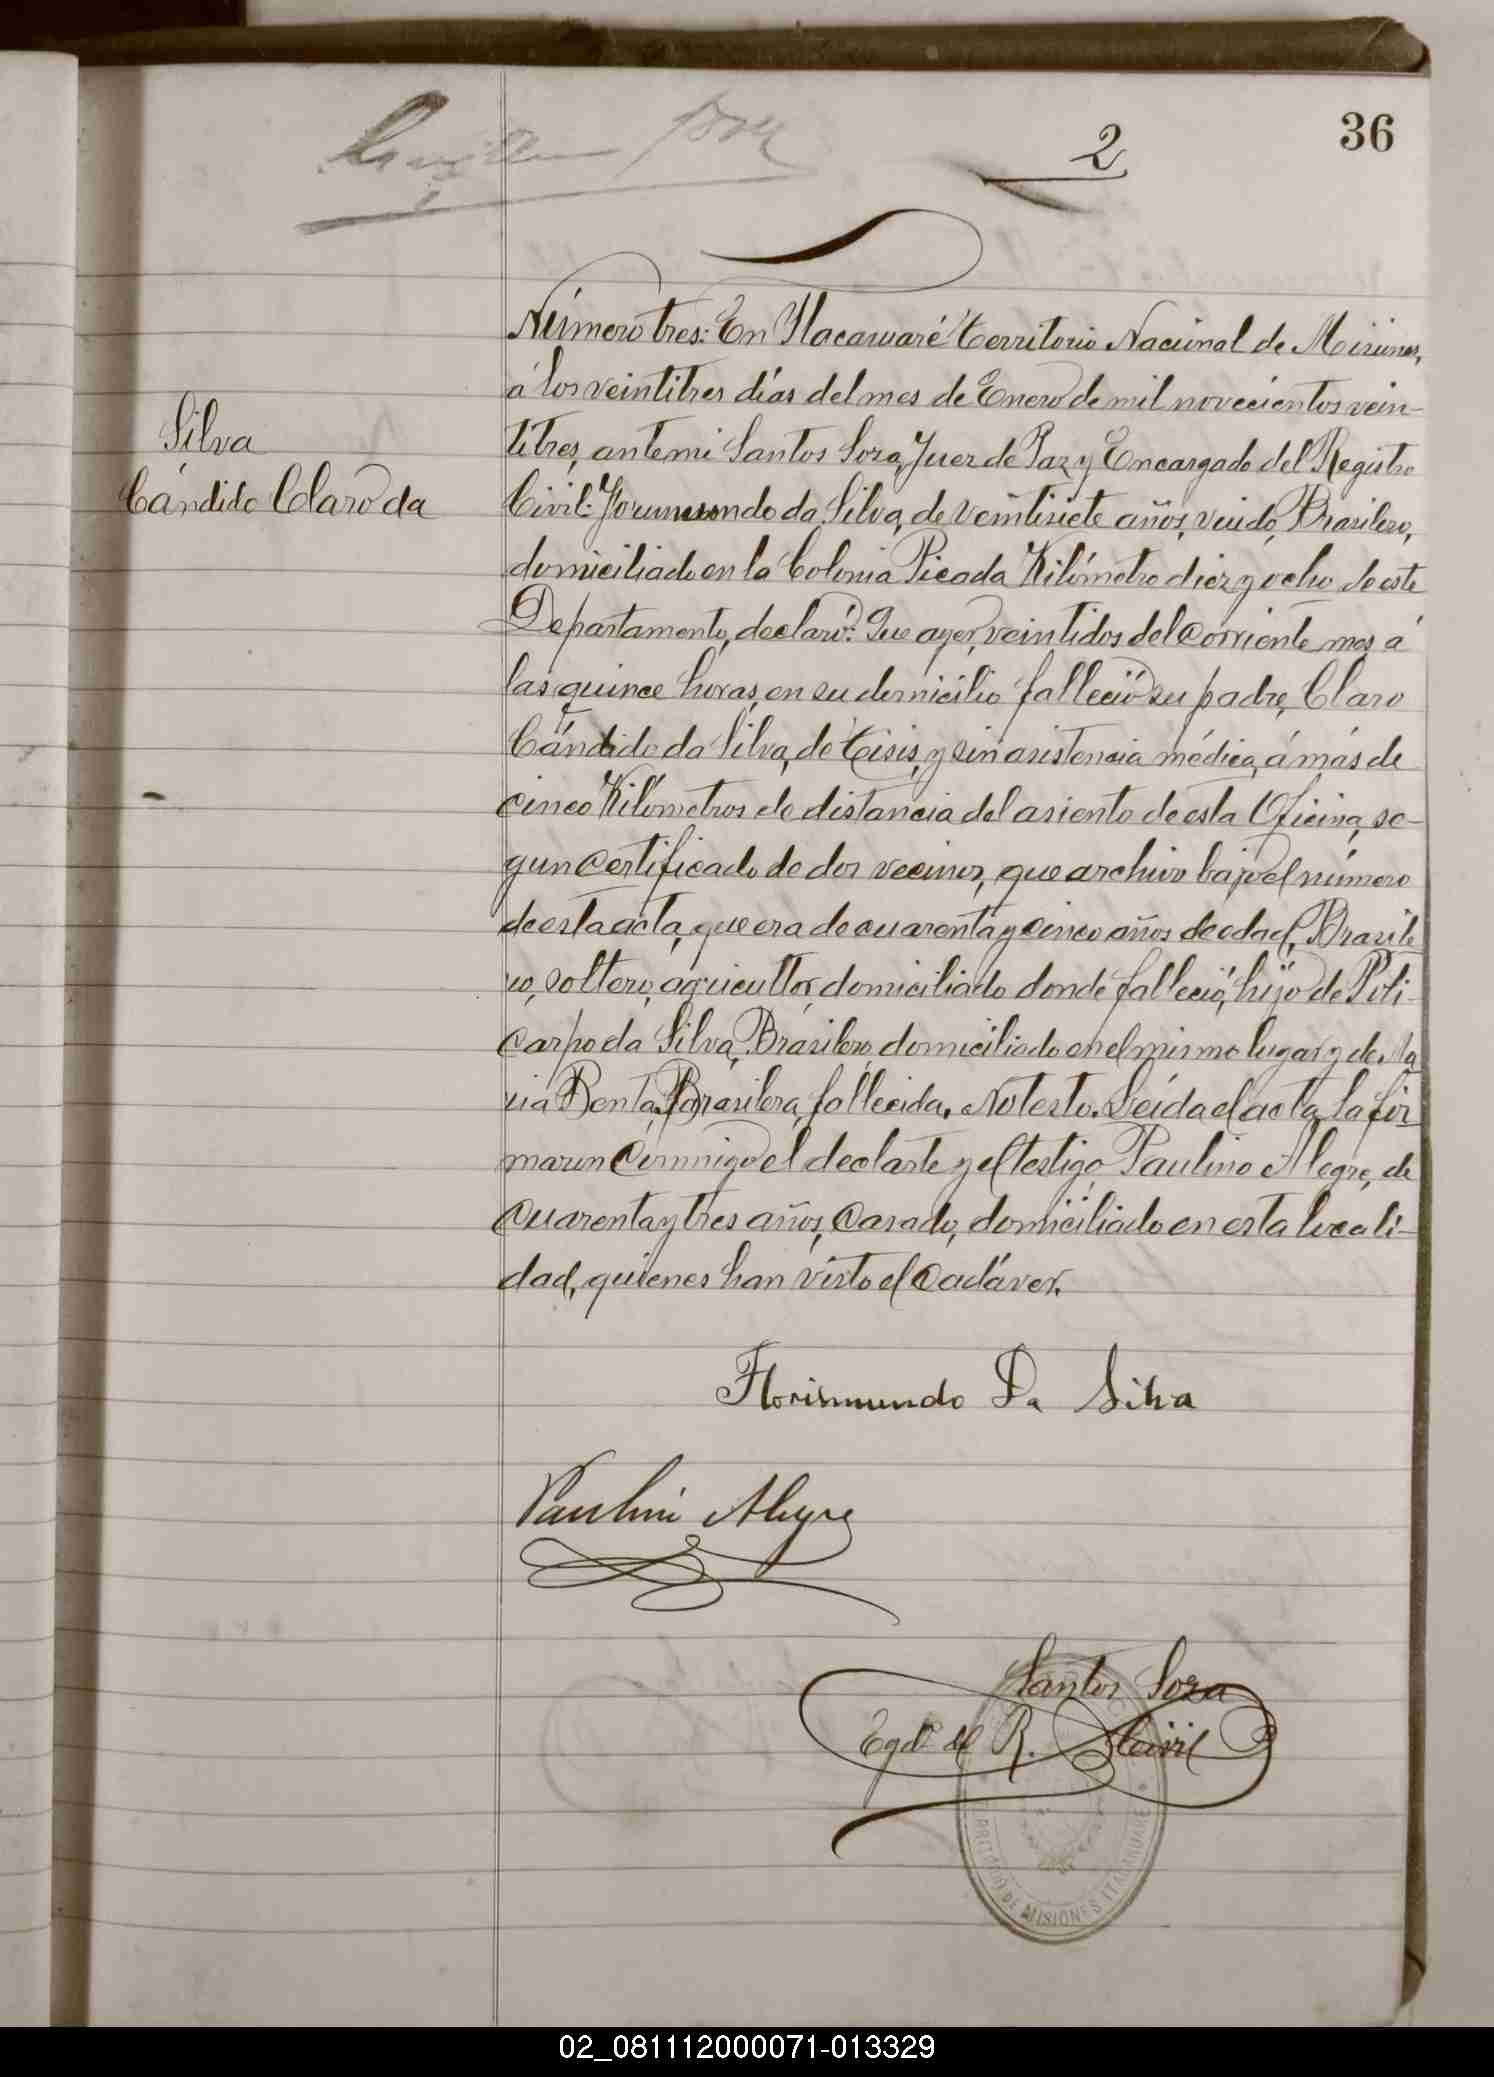 36
2
Número tres: En Ytacaruaré Territorio Nacional de Misiones,
á los veintitres días del mes de Enero de mil novecientos vein-
Silva
titres, ante mi Santos Soza, Juez de Paz y Encargado del Registro
Cándido Claro da
Civil: da Silva, de veintisiete años, viudo, Brasilero,
domiciliado en la Colonia Picada Kilómetro diez y ocho de este
Departamento, declaró: Que ayer, veintidos del corriente mes á
las quince horas, en su domicilio falleció su padre, Claro
Cándido da Silva, de Tisis, y sin asistencia médica, á más de
cinco Kilómetros de distancia del asiento de esta Oficina, se-
gun certificado de dos vecinos, que archivo bajo el número
de esta acta, que era de cuarenta y cinco años de edad, Brasile
ro, soltero, agricultor, domiciliado donde falleció, hijo de Poli-
carpo da Silva, Brasilero, domiciliado en el mismo lugar, y de Ma
ria Benta, Brasilera, fallecida. No testo. Leída el acta, la fir
maron conmigo el declarte y el testigo Paulino Alegre, de
cuarenta y tres años, casado, domiciliado en esta locali-
dad, quienes han visto el cadáver.
Florismundo Da Silva
Paulino Alegre
Santos Soza
Egdo. del R. Civil
TERRITORIO DE MISIONES ITACARUARE
02_081112000071-013329